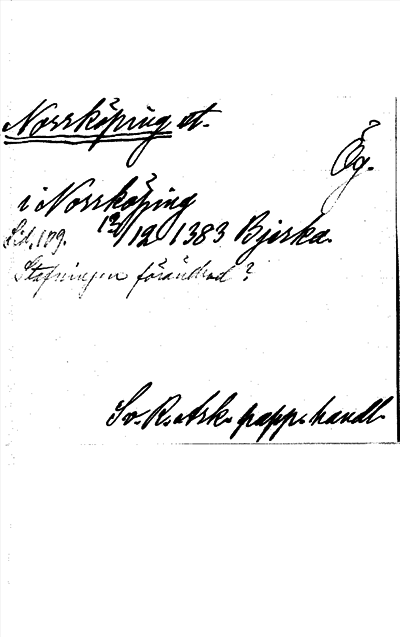 Norrköping st.
Ög.
i Norrköping
12/12 1383 Bjerka.
Sid. 109.
Stafningen förändrad?
Sv. R. Ark. papp. handl.